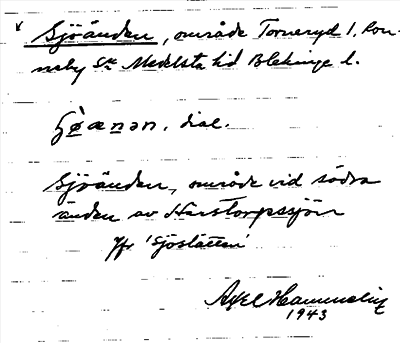 Sjöänden, område Torneryd 1, Ron-
neby sn Medelsta hd Blekinge l.
ʃø̀ænən. dial.
Sjöänden, område vid södra
änden av Harstorpssjön
Jfr 'Sjöslätten'
Axel Hammelin
1943